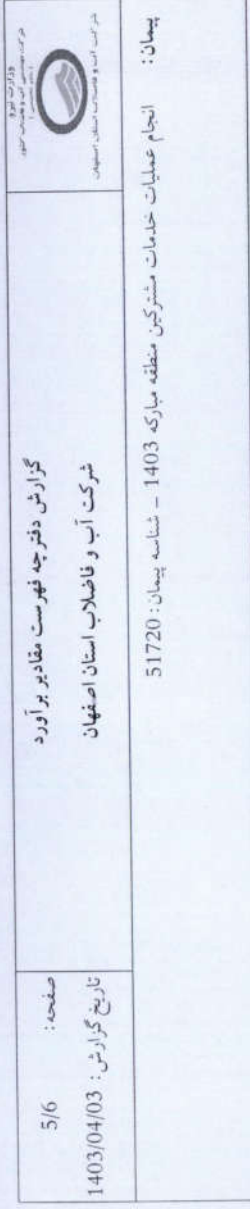 وزارت نیرو
شرکت مهندسی آب و فاضلاب کشور
شرکت آب و فاضلاب استان اصفهان
گزارش دفترچه فهرست مقادیر برآورد
شرکت آب و فاضلاب استان اصفهان
صفحه: 5/6
تاریخ گزارش: 1403/04/03
پیمان: انجام عملیات خدمات مشترکین منطقه مبارکه 1403 ـ شناسه پیمان: 51720